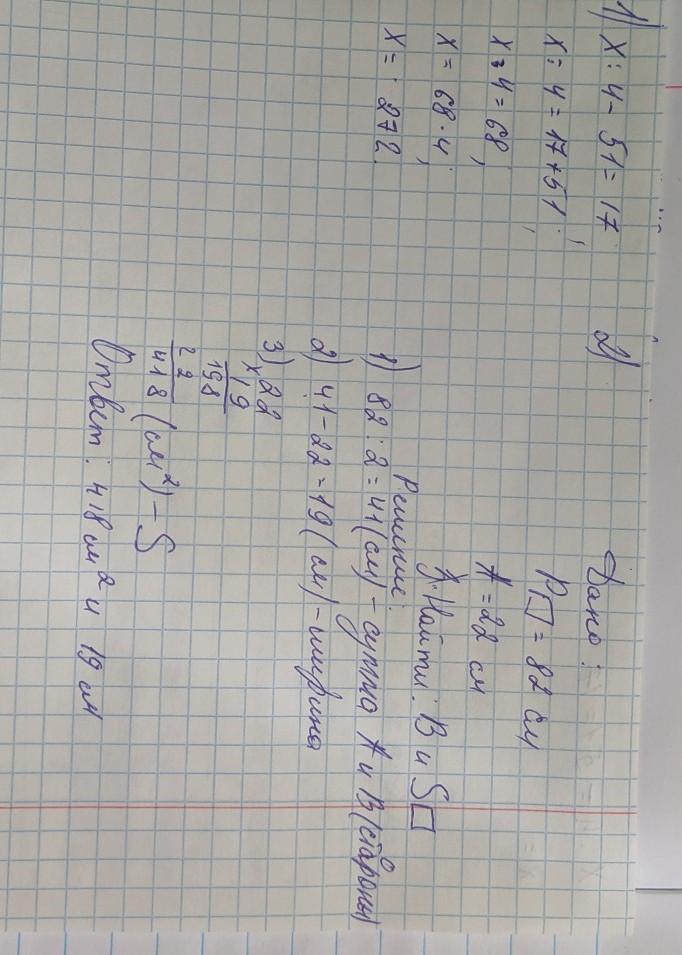 1) x : 4 - 51 = 17
x : 4 = 17 + 51;
x : 4 = 68;
x = 68 · 4;
x = 272.
2)
Дано:
P▭ = 82 см
A = 22 см
Найти: B и S▭
Решение:
1) 82 : 2 = 41 (см) - сумма A и B (стороны)
2) 41 - 22 = 19 (см) - ширина
3) 22
x 19
198
22
418 (см²) - S
Ответ: 418 см² и 19 см